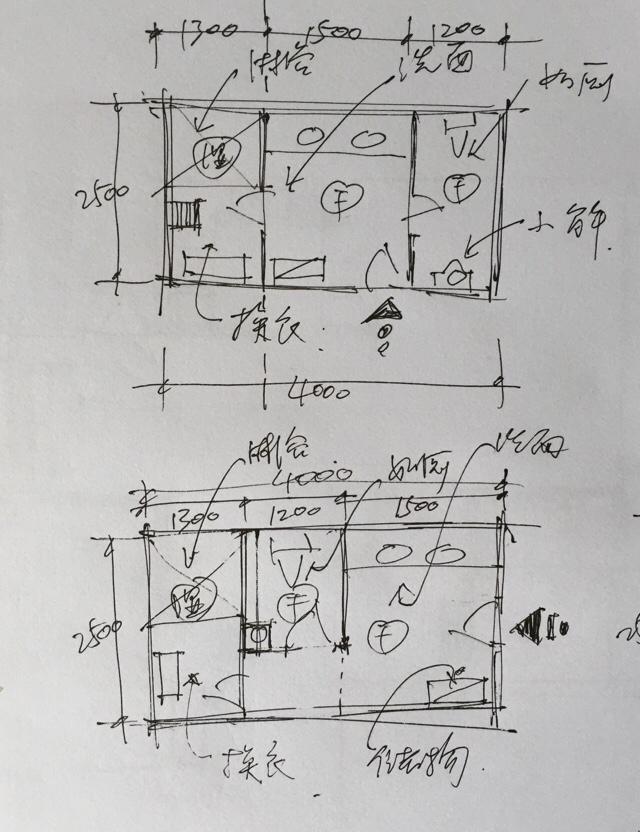 1300 1500 1200
淋浴 洗面 如厕
2500
湿 干 干
小便
换衣
4000
淋浴 如厕 洗面
4000
1300 1200 1500
2500
湿 干 干
换衣 储物